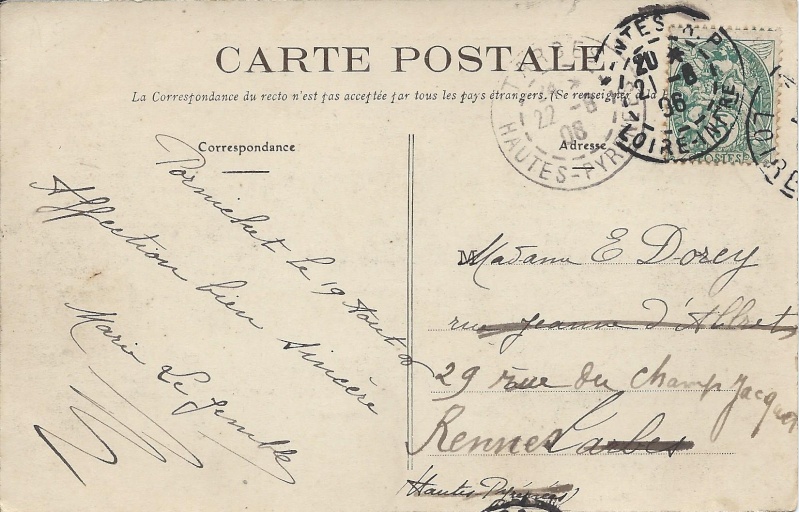 CARTE POSTALE
La Correspondance du recto n'est pas acceptée par tous les pays étrangers. (Se renseigner à la
Correspondance
Adresse
Pornichet le 19 Aout 06
Affection bien sincère
Marie Le
M Madame E Dorey
rue Jeanne d'Albret
29 rue du Champ Jacquet
Rennes Tarbes
Hautes Pyrénées
22 -8
06
HAUTES-PYR
NTES
20
21 -8
06
LOIRE-INFRE
POSTES